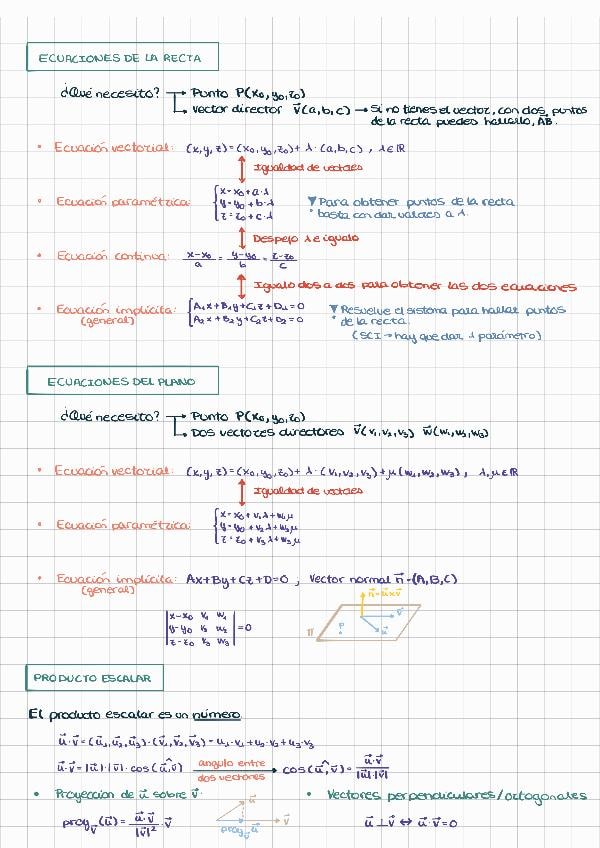 ECUACIONES DE LA RECTA
¿Qué necesito? → Punto P(x₀,y₀,z₀)
→ Vector director v⃗(a,b,c) → Si no tienes el vector, con dos puntos
de la recta puedes hallarlo, AB⃗.
• Ecuación vectorial: (x,y,z)=(x₀,y₀,z₀)+λ·(a,b,c), λ∈ℝ
↕ Igualdad de vectores
• Ecuación paramétrica: { x=x₀+a·λ
y=y₀+b·λ
z=z₀+c·λ
▼ Para obtener puntos de la recta
basta con dar valores a λ.
↕ Despejo λ e igualo
• Ecuación continua: (x-x₀)/a = (y-y₀)/b = (z-z₀)/c
↕ Igualo dos a dos para obtener las dos ecuaciones
• Ecuación implícita: { A₁x+B₁y+C₁z+D₁=0
(general) A₂x+B₂y+C₂z+D₂=0
▼ Resuelve el sistema para hallar puntos
de la recta.
(SCI → hay que dar 1 parámetro)
ECUACIONES DEL PLANO
¿Qué necesito? → Punto P(x₀,y₀,z₀)
→ Dos vectores directores v⃗(v₁,v₂,v₃) w⃗(w₁,w₂,w₃)
• Ecuación vectorial: (x,y,z)=(x₀,y₀,z₀)+λ·(v₁,v₂,v₃)+μ(w₁,w₂,w₃), λ,μ∈ℝ
↕ Igualdad de vectores
• Ecuación paramétrica: { x=x₀+v₁λ+w₁μ
y=y₀+v₂λ+w₂μ
z=z₀+v₃λ+w₃μ
• Ecuación implícita: Ax+By+Cz+D=0, Vector normal n⃗=(A,B,C)
(general)
n⃗=u⃗×v⃗
| x-x₀ v₁ w₁ |
| y-y₀ v₂ w₂ | =0
| z-z₀ v₃ w₃ |
v⃗
P
u⃗
π
PRODUCTO ESCALAR
El producto escalar es un número.
u⃗·v⃗=(u⃗₁,u⃗₂,u⃗₃)·(v⃗₁,v⃗₂,v⃗₃)=u₁·v₁+u₂·v₂+u₃·v₃
u⃗·v⃗=|u⃗|·|v⃗|·cos(u⃗,v⃗) angulo entre dos vectores → cos(u⃗,v⃗)= u⃗·v⃗/|u⃗|·|v⃗|
• Proyección de u⃗ sobre v⃗.
• Vectores perpendiculares/octogonales
proy_v⃗(u⃗)= u⃗·v⃗/|v⃗|² ·v⃗
u⃗
v⃗
proy_v⃗ u⃗
u⃗⊥v⃗ ↔ u⃗·v⃗=0